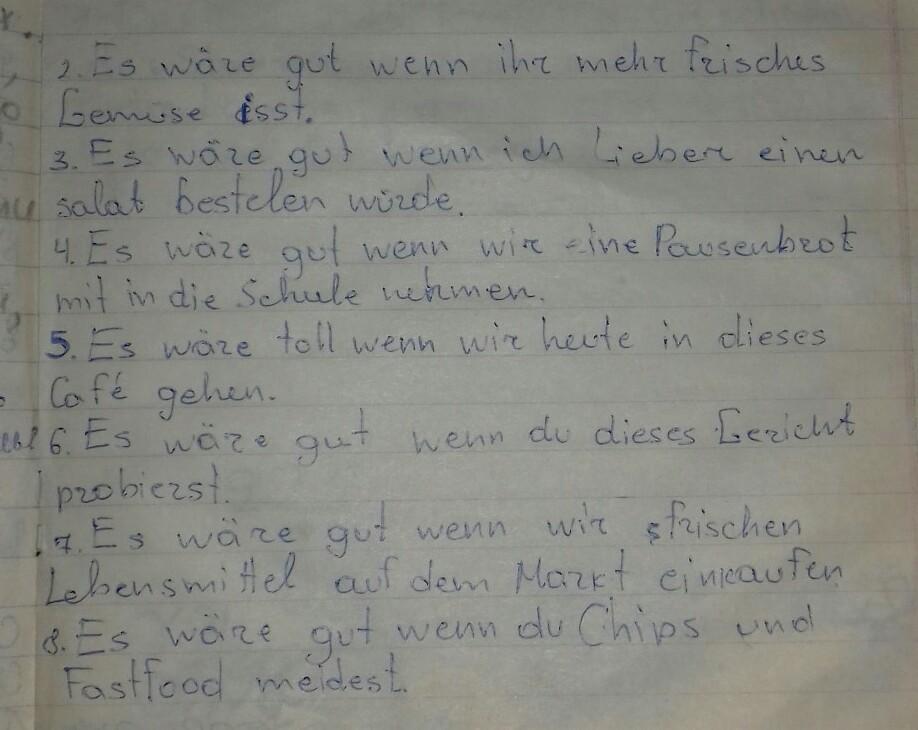 2. Es wäre gut wenn ihr mehr frisches
Gemüse isst.
3. Es wäre gut wenn ich Lieber einen
salat bestelen würde.
4. Es wäre gut wenn wir eine Pausenbrot
mit in die Schule nehmen.
5. Es wäre toll wenn wir heute in dieses
Café gehen.
6. Es wäre gut wenn du dieses Gericht
probierst.
7. Es wäre gut wenn wir frischen
Lebensmittel auf dem Markt einkaufen
8. Es wäre gut wenn du Chips und
Fastfood meidest.